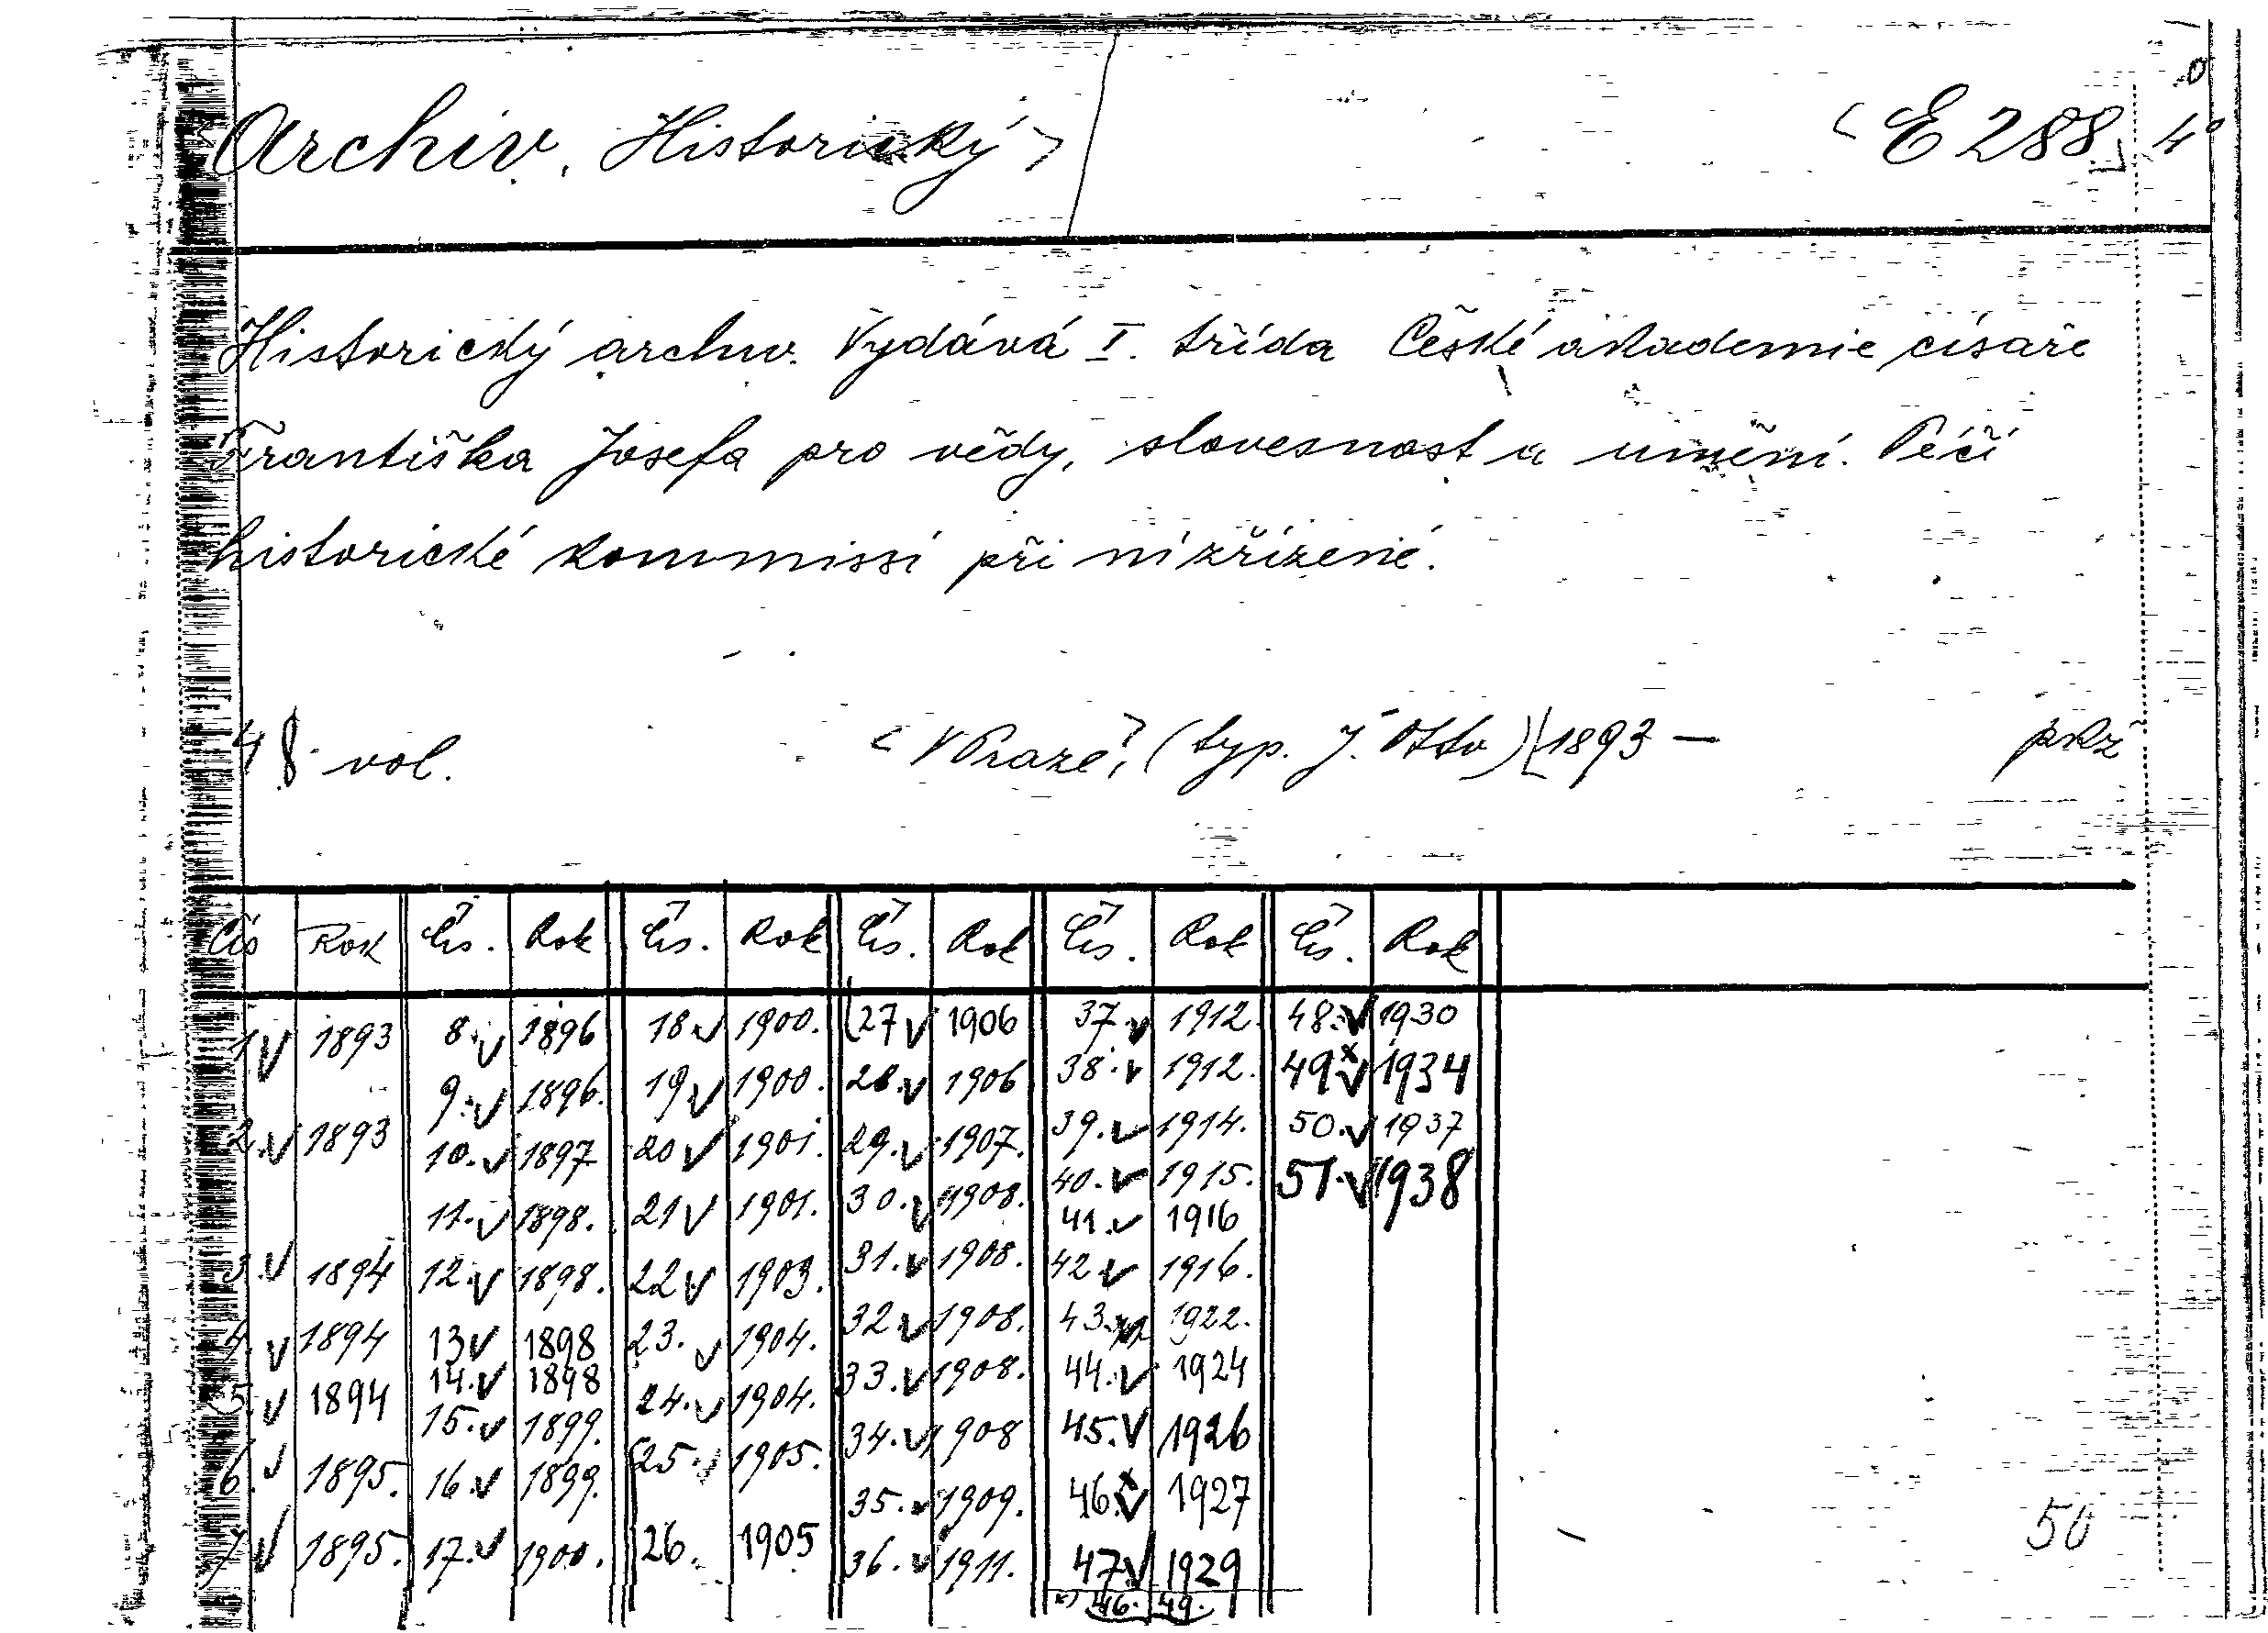 Archiv, Historický > < E 288 4°
Historický archiv. Vydává I. třída České akademie císaře
Františka Josefa pro vědy, slovesnost a umění. Péčí
historické kommissi při ní zřízené.
48 vol. < V Praze, (typ. J. Otto) [1893 — prž
Čís Rok Čís. Rok Čís. Rok Čís. Rok Čís. Rok Čís. Rok
1 v 1893 8. v 1896 18. v 1900. 27 v 1906 37. v 1912. 48. v 1930
9. v 1896. 19 v 1900. 28. v 1906 38. v 1912. 49.x v 1934
2. v 1893 10. v 1897 20 v 1901. 29. v 1907. 39. v 1914. 50. v 1937
11. v 1898. 21 v 1901. 30. v 1908. 40. v 1915. 51. v 1938
41. v 1916
3. v 1894 12. v 1898. 22 v 1903. 31. v 1908. 42 v 1916.
4. v 1894 13 v 1898 23. v 1904. 32 v 1908. 43. v 1922.
14. v 1898 33. v 1908. 44. v 1924
5. v 1894 15. v 1899. 24. v 1904. 34. v 1908 45. v 1926
6. v 1895. 16. v 1899. 25. v 1905. 35. v 1909. 46.x v 1927
7 v 1895. 17. v 1900. 26. 1905 36. v 1911. 47 v 1929
x) 46. 49.
50